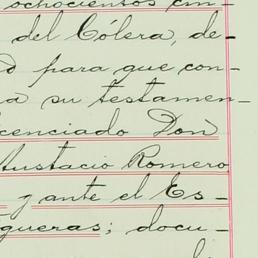 ochocientos cin-
del Cólera, de-
para que con-
a su testamen-
cenciado Don
ustacio Romero
y ante el Es-
gueras; docu-